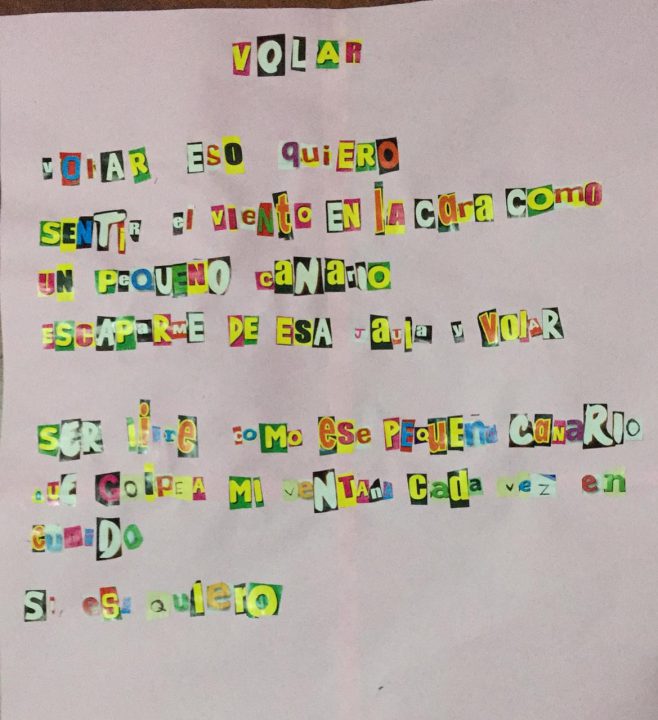 VOLAR
VOlAR ESO quiERO
SENTIR el VIENtO EN lA CaRa COMO
UN PeQUEÑO CANArIO
ESCAPaRME DE ESA JaUla y VOlAR
SER libre COMO ese PEQUEÑO CANARIO
qUE GOlPEA MI VeNTANa Cada vez en
CUaiDO
Si eso quiero